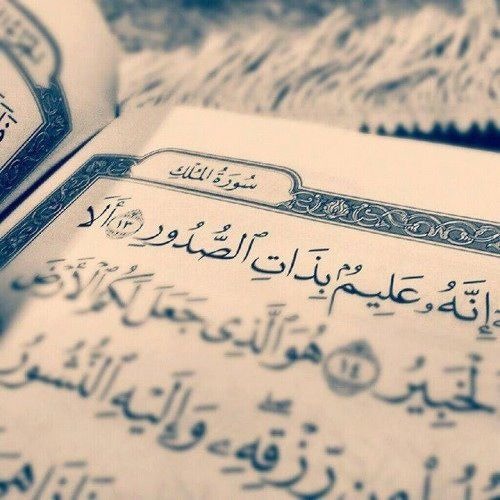 سُورَةُ المُلْكِ
إِنَّهُۥ عَلِيمٌۢ بِذَاتِ ٱلصُّدُورِ ١٣ أَلَا
ٱلْخَبِيرُ ١٤ هُوَ ٱلَّذِى جَعَلَ لَكُمُ ٱلْأَرْضَ
رِّزْقِهِۦ وَإِلَيْهِ ٱلنُّشُورُ